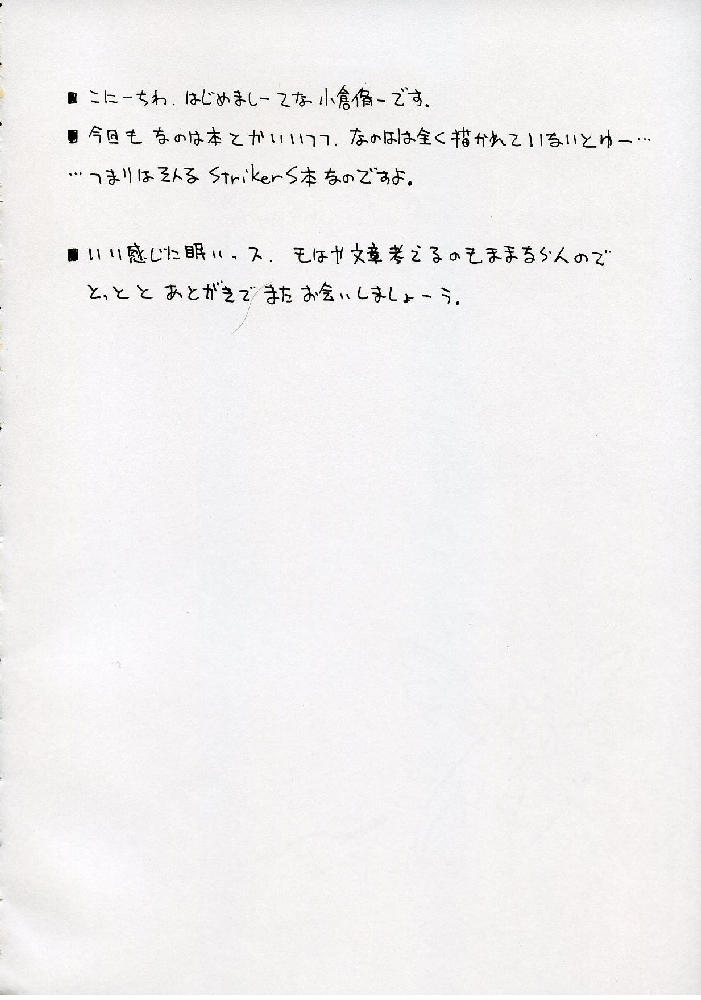 ■ こにーちわ、はじめましーてな小倉脩一です。
■ 今回も なのは本とかいいつつ、なのはは全く描かれていないとゆー…
…つまりはそんな StrikerS本なのですよ。
■ いい感じに眠いっス、もはや文章考えるのもままならんので
とっとと あとがきで またお会いしましょーう。